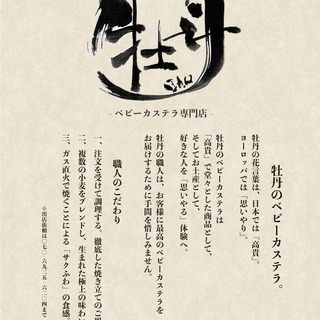 牡丹
- ベビーカステラ専門店 -
牡丹のベビーカステラ。
牡丹の花言葉は、日本では「高貴」。
ヨーロッパでは「思いやり」。
牡丹のベビーカステラは
「高貴」で堂々とした商品として、
そしてお土産として、
好きな人を「思いやる」体験へ。
牡丹の職人は、お客様に最高のベビーカステラを
お届けするために手間を惜しみません。
職人のこだわり
一、注文を受けて調理する、徹底した焼き立てのご提
二、複数の小麦をブレンドし、生まれた極上の味わい
三、ガス直火で焼くことによる「サクふわ」の食感